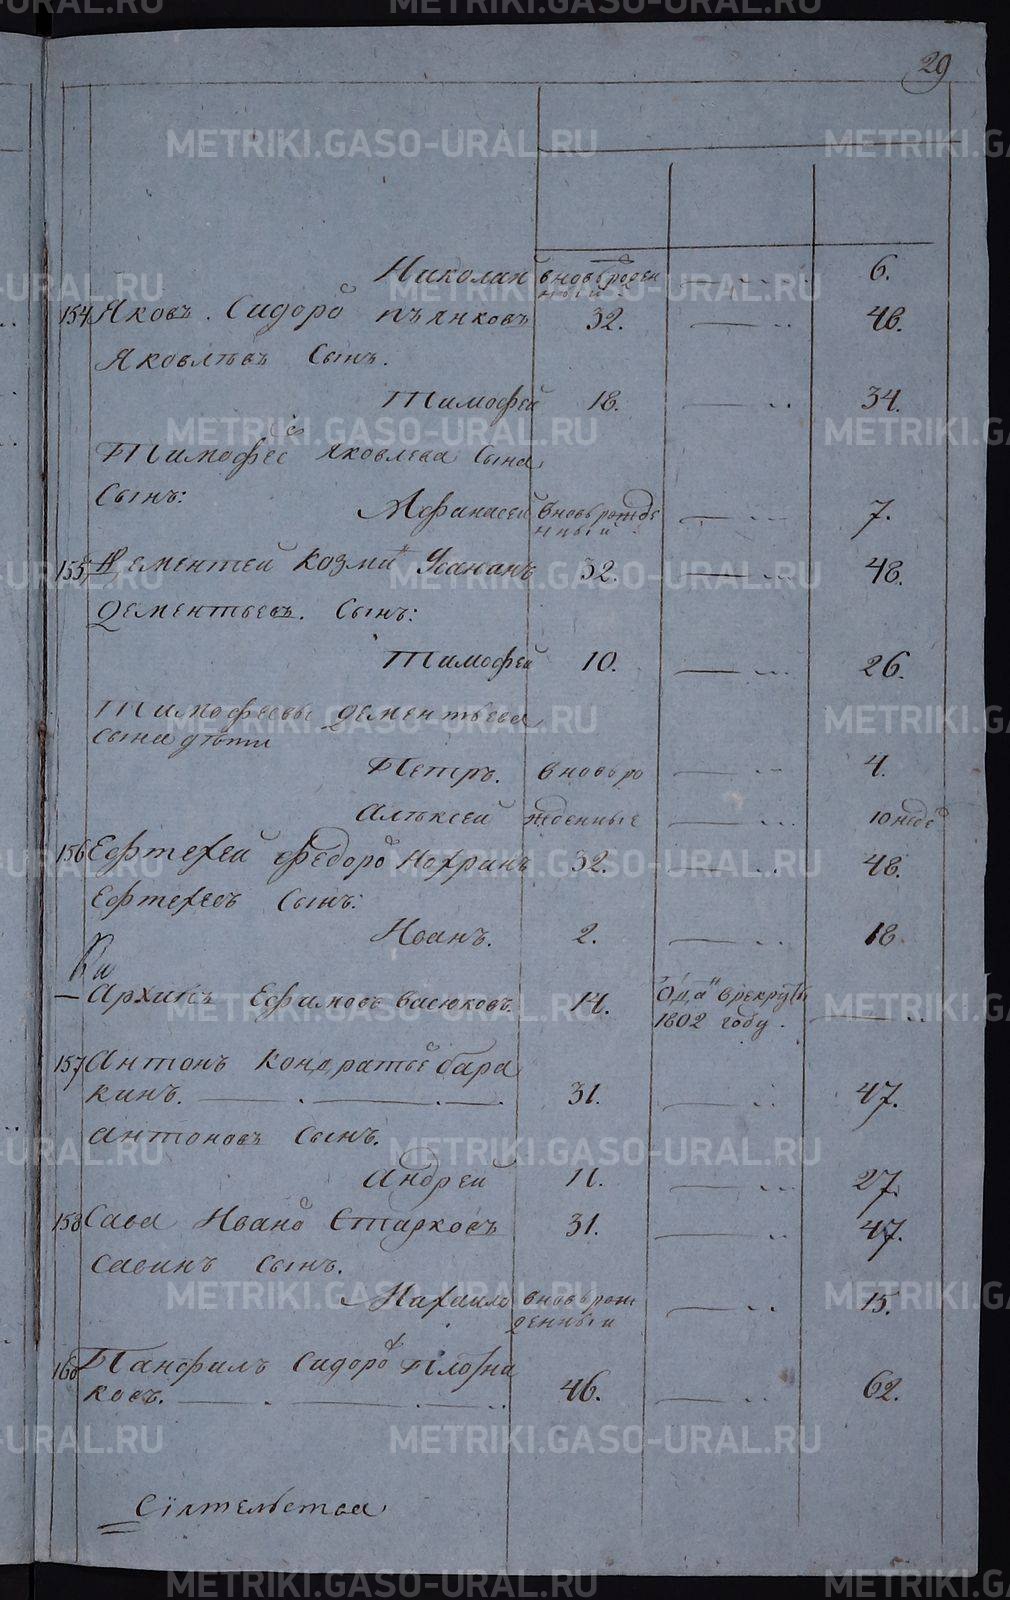 29
Николай вновьрожден ный — 6.
154 Яковъ Сидоро въ пьянковъ 32. — 48.
Яковлевъ Сынъ.
Тимофей 18. — 34.
Тимофее яковлева Сына
Сынъ:
Афанасей вновьрожде нный — 7.
155 Дементей Козми 32. — 48.
Дементьевъ. Сынъ:
Тимофей 10. — 26.
Тимофеевы дементьева
сына дѣти
Петръ. вновьро — 4.
Алѣксей жденные — 10 неде
156 Ефтехей Федоро 32. — 48.
Ефтехеевъ Сынъ:
Иванъ. 2. — 18
Архипъ Ефимовъ Васюковъ. 14. Отда врекруты 1802 году. —
157 Антонъ Кондратье бара
кинъ. — 31. — 47.
антоновъ Сынъ.
Андрей 11. — 27.
158 Сава Ивано Старковъ 31. — 47.
Савинъ Сынъ.
Михаило вновьрож денный — 15.
160 Панфилъ Сидоро
ковъ. — 46. — 62.